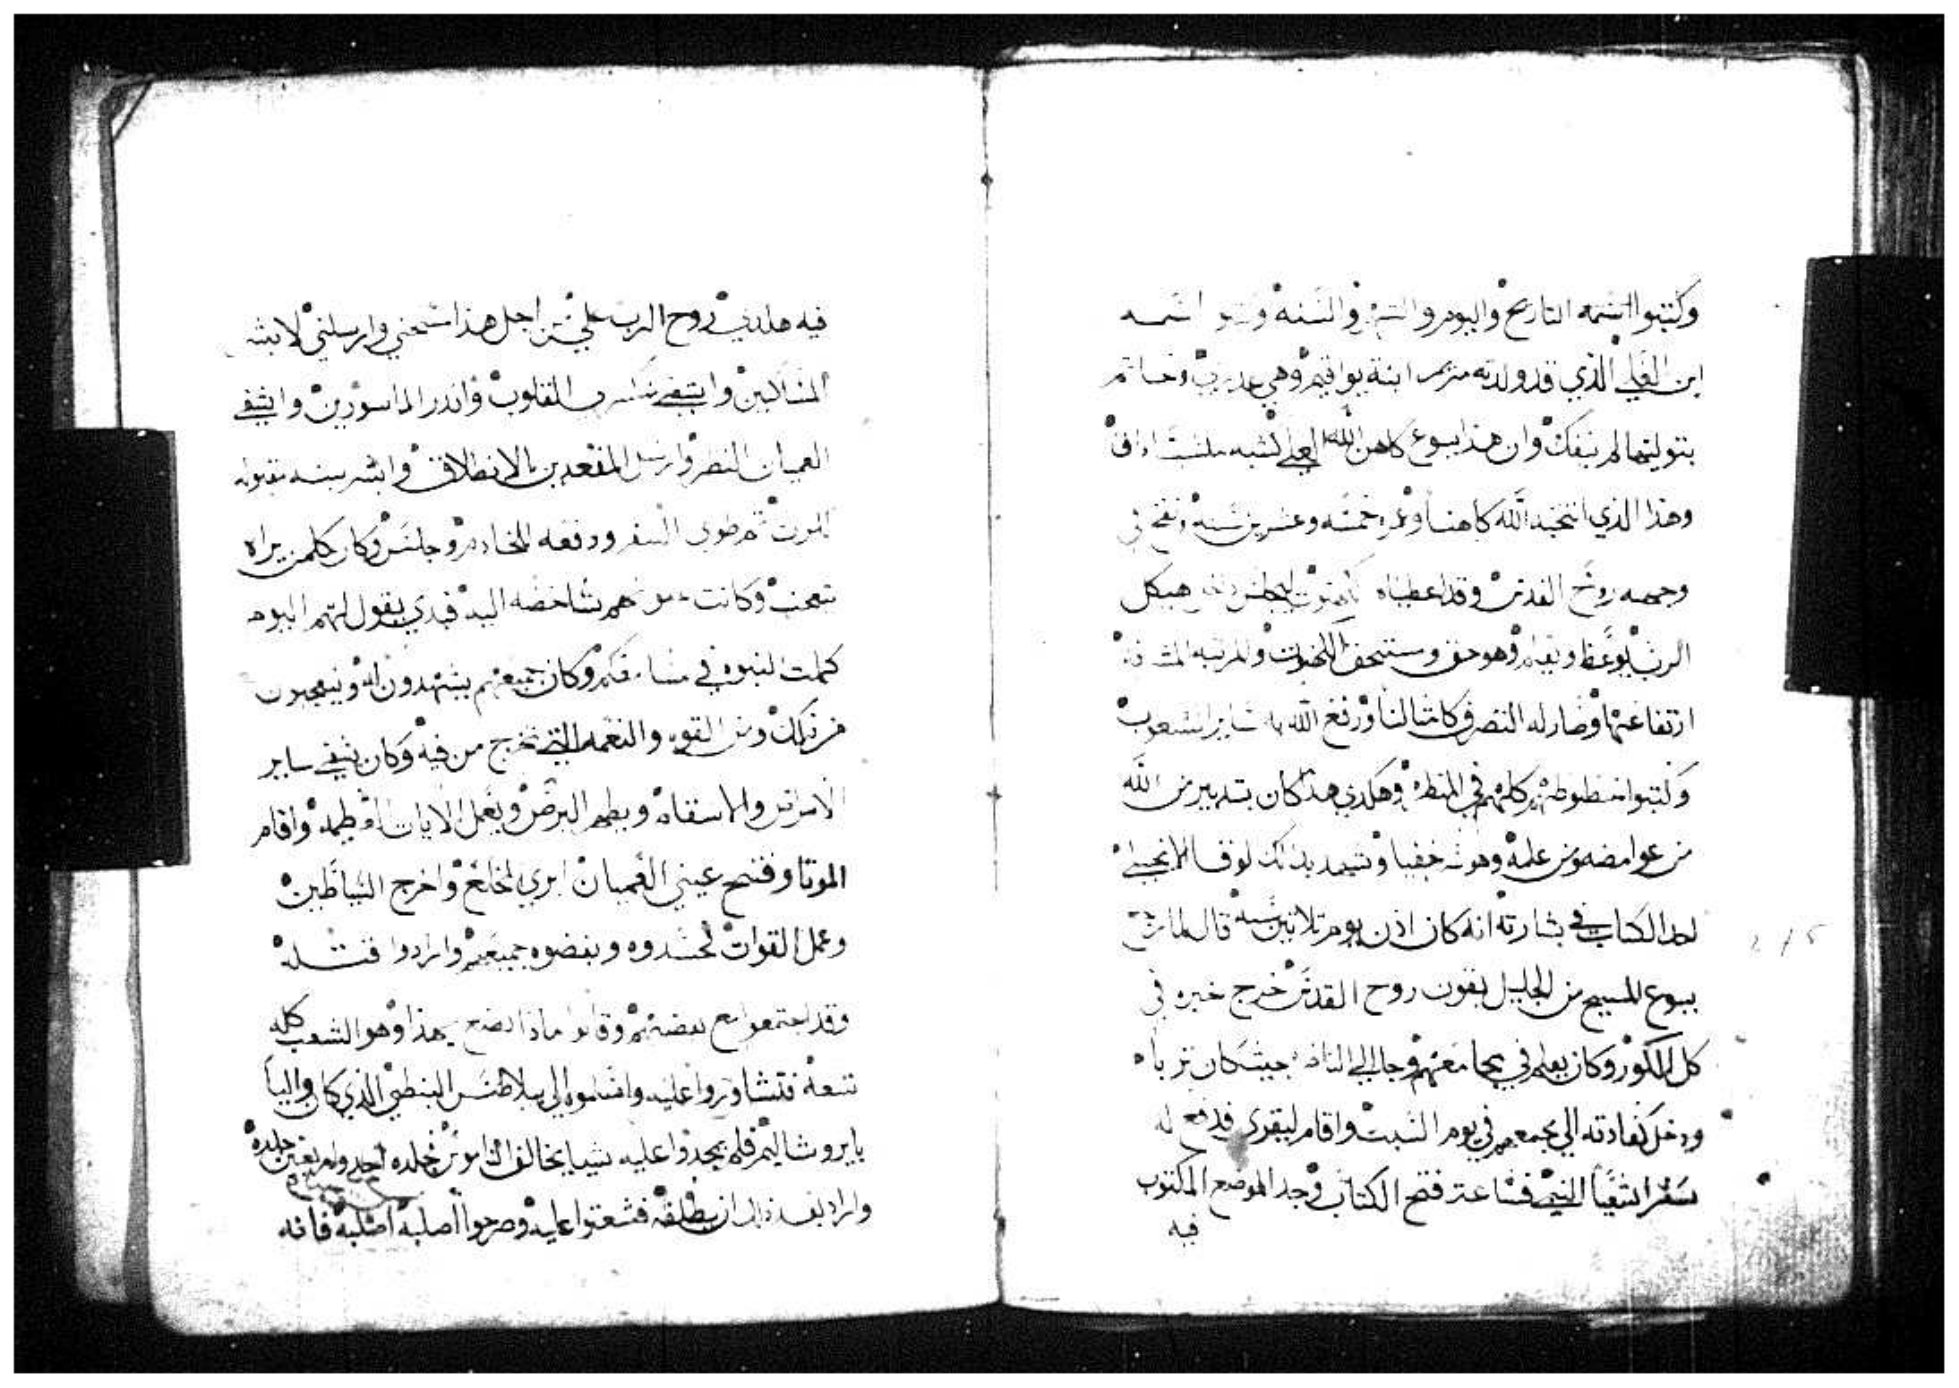 وكتبوا اسمه التاريخ واليوم والشهر والسنه اسمه
ابن العلي الذي قد ولدته مريم ابنة يواقيم وهي
بتوليتها لم ينفك وان هذا يسوع كاهن الله العلي
وهذا الذي انتخبه الله كاهنا وعمره خمسه وعشرين سنه ونفخ في
وجهه روح القدس وقد اعطيناه هيكل
الرب يوعظ وهو حق ومستحق الكهنوت والمرتبه
ارتفاعتها وصار له النصر وكاتنا لنا ورفع الله
وكتبوا خطوطهم كلهم في وهكدي هدا كان بتدبير من الله
من غوامضه ومن علمه خفيا وشهد بذلك لوقا الانجيلي
احد الكتاب في بشارته انه كان اذن يوم تلاتين سنه قال لما رجع
يسوع المسيح من الجليل بقوت روح القدس خرج خبره في
كل الكور وكان يعلم في مجامعهم وجا الي الناصره حيث كان تربا
ودخل كعادته الي مجمعهم في يوم السبت واقام ليقرى فدفع له
سفر اشعيا النبي فساعة فتح الكتاب وجد الموضع المكتوب
فيه
فيه هكدي روح الرب علي من اجل هذا مسحني وارسلني لابشر
المساكين واشفي القلوب وانذر الماسورين واشفي
العميان النظر وارسل المقعدين بالانطلاق وابشر بسنه مقبوله
للرب ثم طوى السفر ودفعه للخادم وجلس وكان كلمن يراه
يتعجب وكانت شاخصه اليه فبدي يقول لهم اليوم
كملت النبوه في مسامعكم وكان جميعهم يشهدون له ويتعجبون
من تلك ومن القوه والنعمه التي تخرج من فيه وكان يشفي ساير
الامراض والاسقام ويطهر البرص ويعمل الايات العظيمه واقام
الموتا وفتح عيني العميان ابري المخلع واخرج الشياطين
وعمل القوات فحسدوه وبغضوه جميعهم وارادوا قتله
وقد اجتمعوا مع بعضهم وقالوا ماذا نصنع بهذا وهو الشعب كله
تبعه فتشاوروا عليه واسلموه الي بيلاطس البنطي الذي كان واليا
بايروشاليم فلم يجدوا عليه شيا يخالف الناموس فجلده احد واربعين جلده
واراد بعد ذلك ان يطلقه فشعتوا عليه وصرخوا اصلبه اصلبه فانه